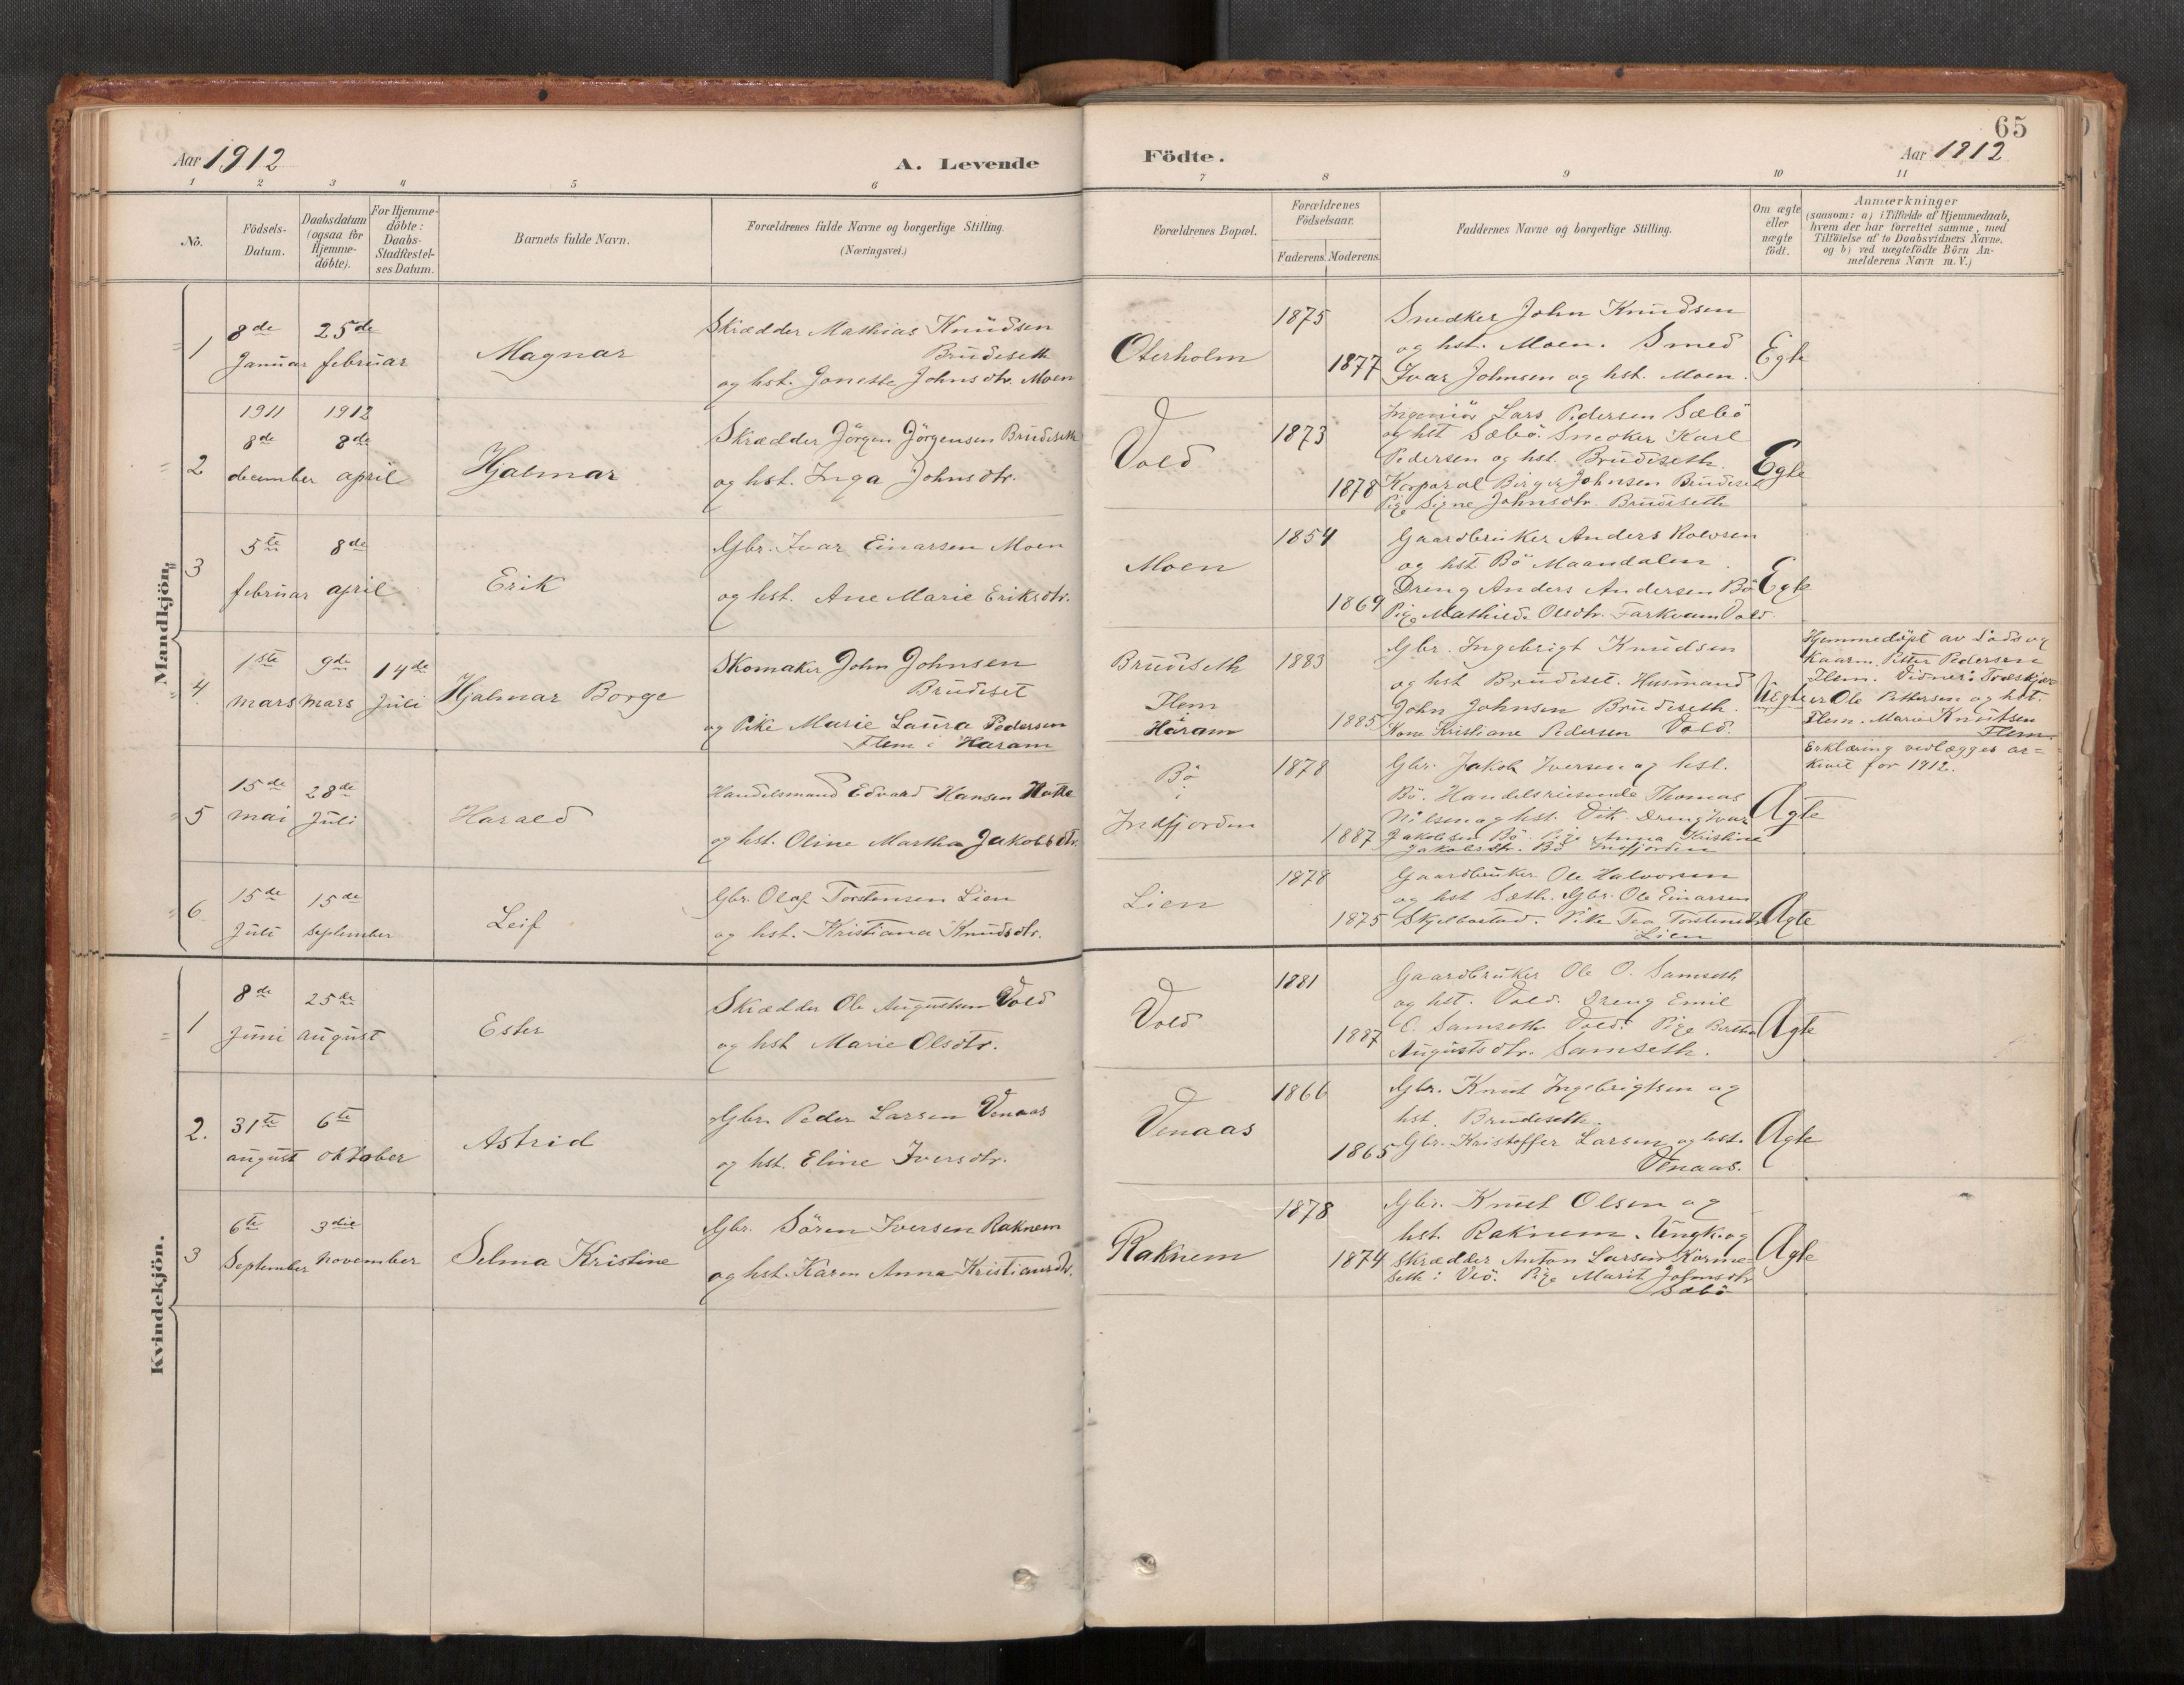 65
Aar 1912
A. Levende
Födte.
Aar 1912
1 2 3 4 5 6 7 8 9 10 11
No.
Födsels-
Datum.
Daabsdatum
(ogsaa for
Hjemme-
döbte).
For Hjemme-
döbte:
Daabs-
Stadfæstel-
ses Datum.
Barnets fulde Navn.
Forældrenes fulde Navne og borgerlige Stilling.
(Næringsvei.)
Forældrenes Bopæl.
Forældrenes
Födselsaar.
Faderens. Moderens.
Faddernes Navne og borgerlige Stilling.
Om ægte
eller
uægte
födt.
Anmærkninger
(saasom: a) i Tilfælde af Hjemmedaab,
hvem der har forrettet samme, med
Tilföielse af to Daabsvidners Navne,
og b) ved uægtefödte Börn An-
melderens Navn m. V.)
Mandkjön.
1
8de
Januar
25de
februar
Magnar
Skrædder Mathias Knudsen
Brudeseth
og hst. Jonette Johnsdtr. Moen
Oterholm
1875
1877
Snedker John Knudsen
og hst. Moen. Smed
Ivar Johnsen og hst. Moen.
Egte
2
1911
8de
december
1912
8de
april
Hjalmar
Skrædder Jörgen Jörgensen Brudeseth
og hst. Inga Johnsdtr.
Vold
1873
1878
Ingeniör Lars Pedersen Sæbö
og hst Sæbö. Snedker Karl
Pedersen og hst. Brudeseth.
Korporal Birger Johnsen Brudeseth
Pige Signe Johnsdtr. Brudeseth
Egte
3
5te
februar
8de
april
Erik
Gbr. Ivar Einarsen Moen
og hst. Ane Marie Eriksdtr.
Moen
1854
1869
Gaardbruker Anders
og hst Bö Maandalen.
Dreng Anders Andersen Bö
Pige Mathilde Olsdtr. Farkvam Vold.
Egte
4.
1ste
mars
9de
mars
14de
Juli
Hjalmar Borge
Skomaker John Johnsen
Brudeset
og Pike Marie Laura Pedersen
Flem i Haram
Brudeseth
Flem
i
Haram
1883
1885
Gbr. Ingebrigt Knudsen
og hst Brudeset. Husmand
John Johnsen Brudeseth.
Kone Kristiane Pedersen Vold.
Uegte
Hjemmedöpt av Gads og
Kaarm. Petter Pedersen
Flem. Vidner: Træskjær
er Ole Pettersen og hst.
Flem. Marie Knutsen
Flem.
Erklæring vedlægges ar=
kivet for 1912.
5
15de
mai
28de
Juli
Harald
Handelsmand Edvard Hansen
og hst. Oline Martha Jakobsdtr.
Bö
i
Indfjorden
1878
1887
Gbr. Jakob Iversen og hst.
Bö. Handelsreisende Thomas
Nilsen og hst. Vik. Dreng Ivar
Jakobsen Bö. Pige Anna Kristine
Jakobsdtr. Bö Indfjorden
Ægte
6
15de
Juli
15de
september
Leif
Gbr. Olaf Torstensen Lien
og hst. Kristiana Knudsdtr.
Lien
1878
1875
Gaardbruker Ole Halvorsen
og hst Sæth. Gbr. Ole Einarsen
Skjelbostad. Pike Tea Torstensdtr
Lien
Ægte
Kvindekjön.
1
8de
Juni
25de
august
Ester
Skrædder Ole Augustsen Vold
og hst Marie Olsdtr.
Vold
1881
1887
Gaardbruker Ole O. Samseth
og hst. Vold. Dreng Emil
O. Samseth Vold. Pige Bertha
Augustsdtr. Samseth.
Ægte
2.
31te
august
6te
oktober
Astrid
Gbr. Peder Larsen Venaas
og hst. Eline Iversdtr.
Venaas
1866
1865
Gbr. Knut Ingebrigtsen og
hst. Brudeseth.
Gbr. Kristoffer Larsen og hst.
Venaas.
Ægte
3
6te
September
3die
november
Selma Kristine
Gbr. Sören Iversen Raknem
og hst. Karen Anna Kristiansdtr.
Raknem
1878
1874
Gbr. Knut Olsen og
hst. Raknem. Ungk. og
skrædder Anton Larsen Korme
seth i Veö. Pige Marit Johnsdtr
Sæbö
Ægte